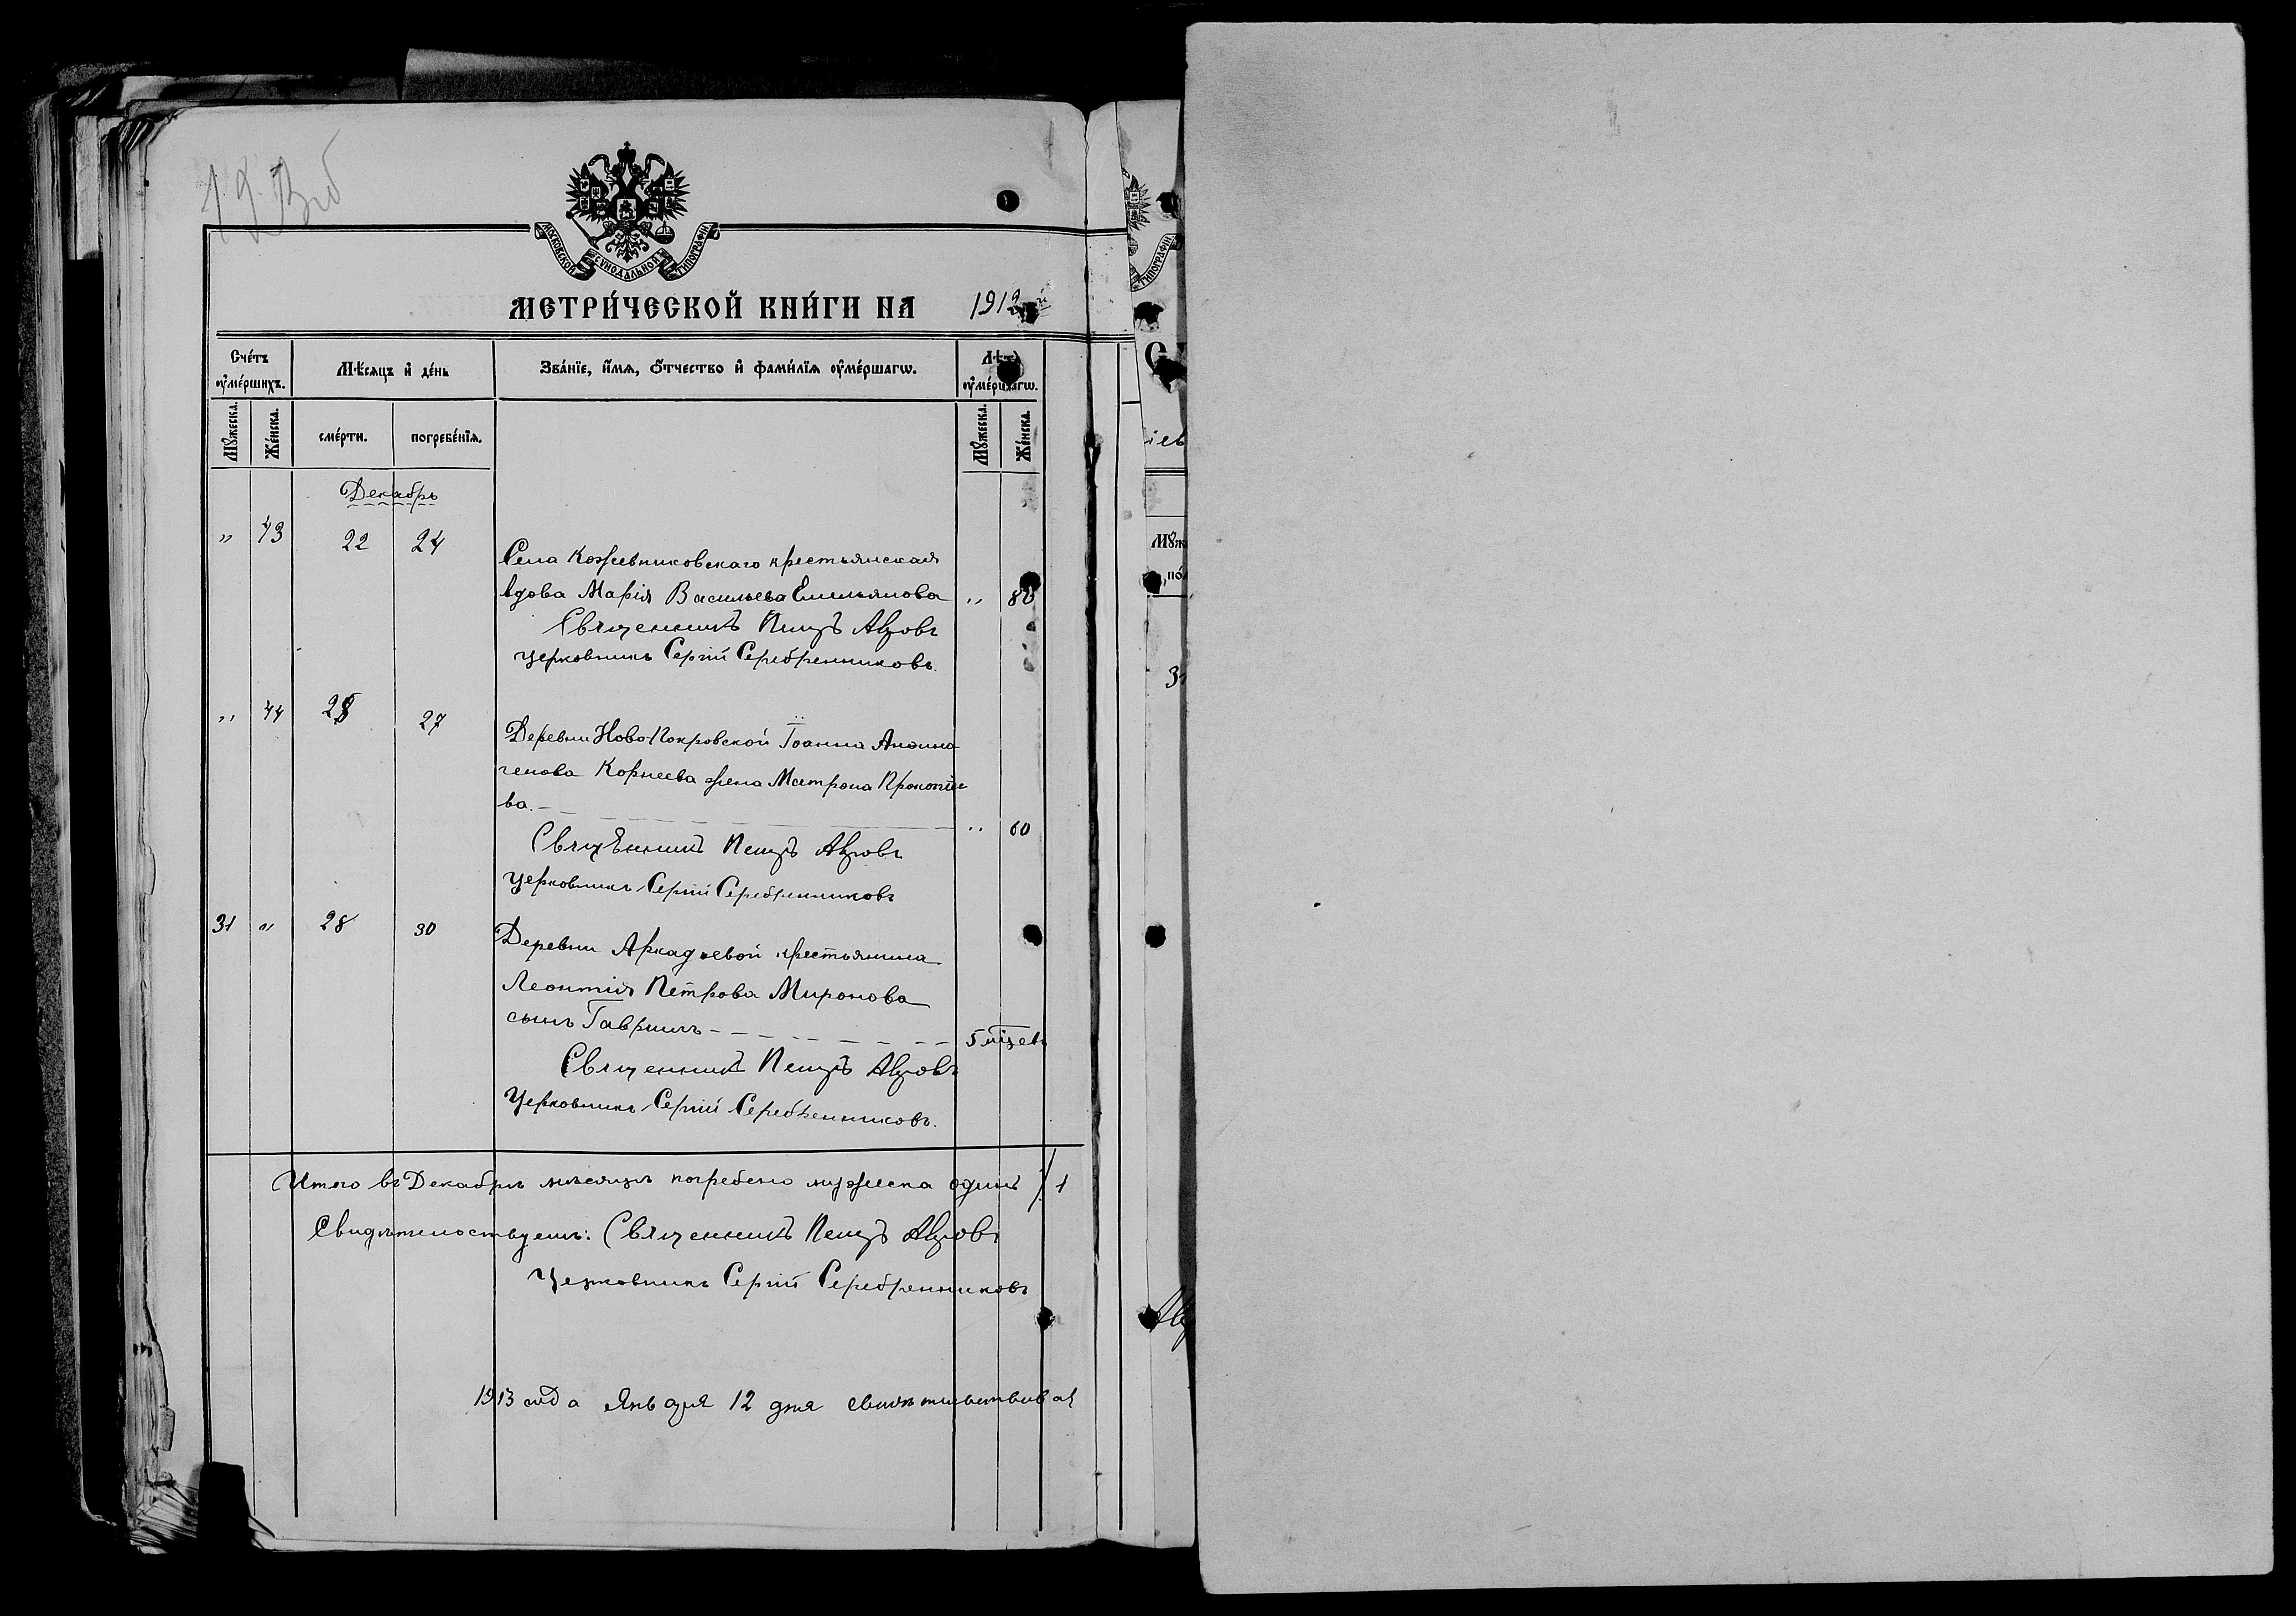 МОСКОВСКОЙ СѴНОДАЛЬНОЙ ТИПОГРАФІИ.
МЕТРИ́ЧЕСКОЙ КНИ́ГИ НА 1912
Сче́тъ ᲂу҆ме́ршихъ.
Мѣ́сяцъ и҆ де́нь
Зва́нїе, и҆́мѧ, ѻ҆́тчество и҆ фами́лїѧ ᲂу҆ме́ршагѡ.
Лѣ́та ᲂу҆ме́ршагѡ.
Мꙋ́жеска.
Же́нска.
сме́рти.
погребе́нїѧ.
Мꙋ́жеска.
Же́нска.
Декабрь
" 43 22 24
Села Кожевниковскаго крестьянская
вдова Марія Васильева Емельянова " 80
Священникъ Петръ Азровъ
церковникъ Сергій Серебренниковъ.
" 44 27
Деревни Ново-Покровской Іоанна
Корнеева жена Матрона Прокопіе
ва. " 60
Священникъ Петръ Азровъ
Церковникъ Сергій Серебренниковъ
31 " 28 30
Деревни Аркадьевой крестьянина
Леонтія Петрова Миронова
сынъ Гавріилъ 5 мцев
Священникъ Петръ Азровъ
Церковникъ Сергій Серебренниковъ.
Итого въ Декабрѣ мѣсяцѣ погребено мужеска одинъ / 1
Свидѣтельствуемъ: Священникъ Петръ Азровъ
Церковникъ Сергій Серебренниковъ
1913 года Января 12 дня свидѣтельствовал